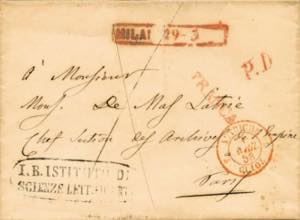 MILANO 29-3
P.D
À Monsieur
Mons. De Mas Latrie
Chef Section des Archives de l'Empire
Paris
I. R. ISTITUTO DI
SCIENZE LETT. ED ARTI